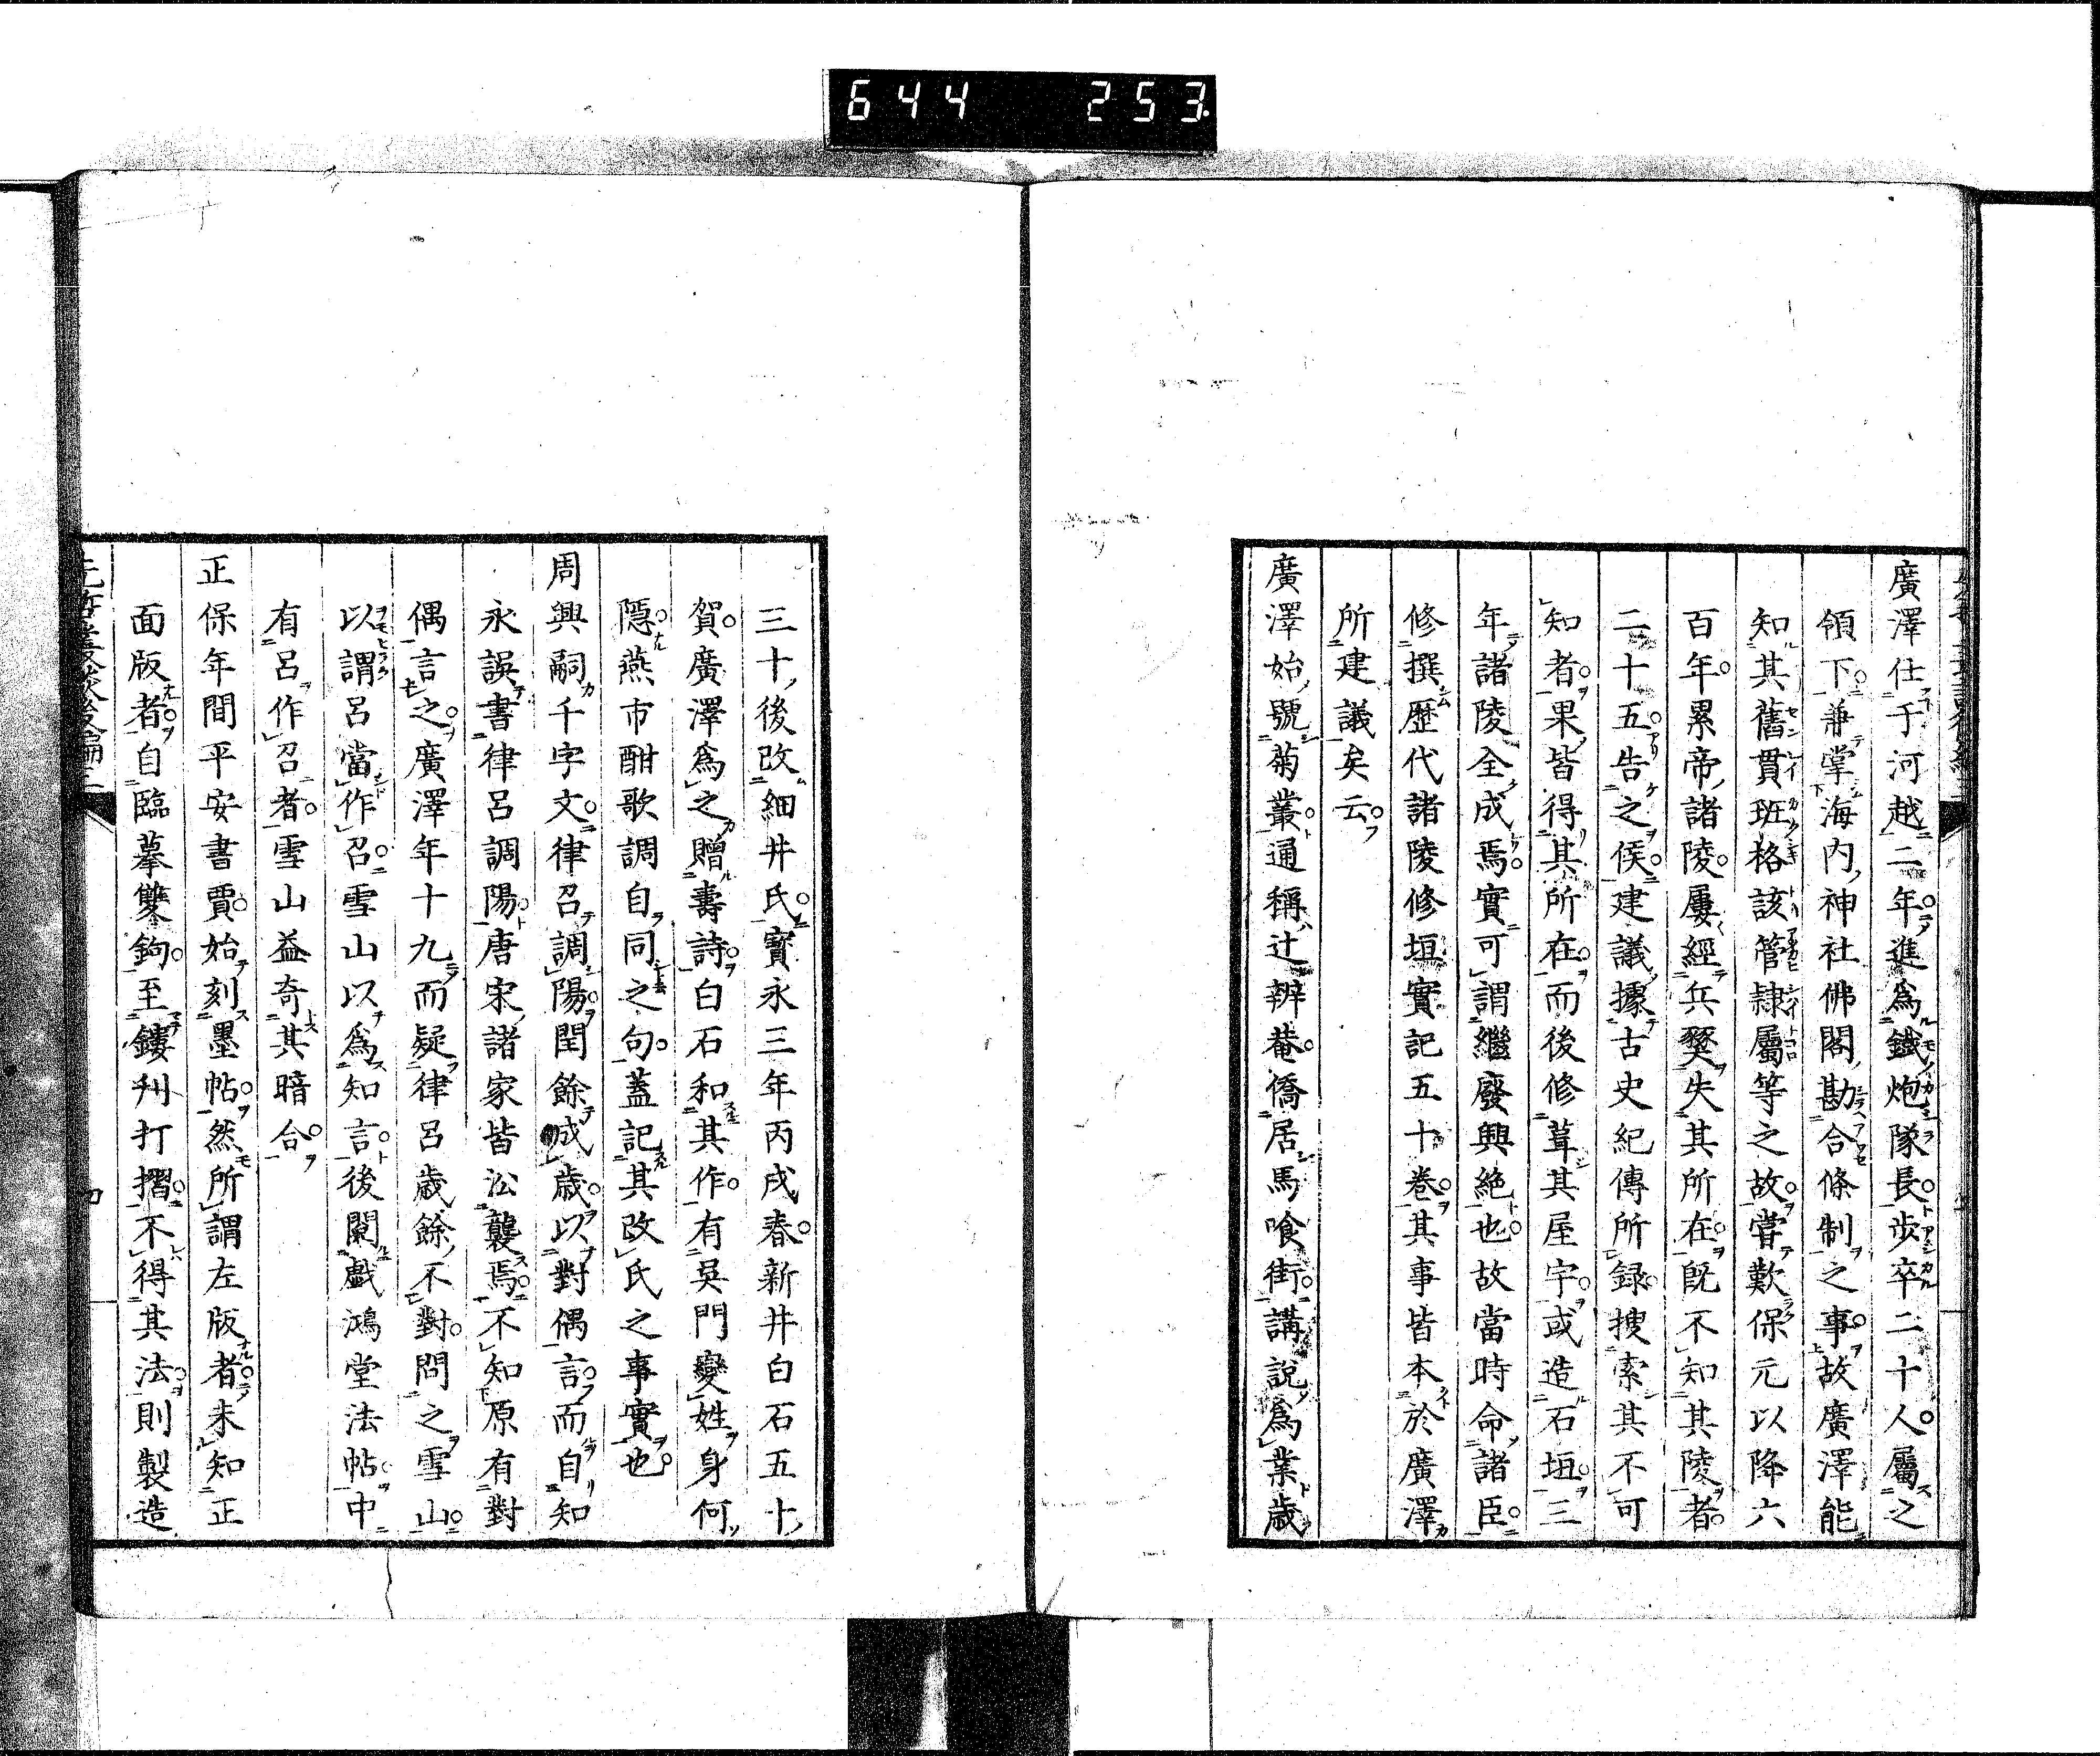 644 253
廣澤仕于河越二年進爲鐵炮隊長歩卒二十人屬之
領下兼掌海内神社佛閣勘合條制之事故廣澤能
知其舊貫班格該管隷屬等之故嘗歎保元以降六
百年累帝諸陵屢經兵燹失其所在既不知其陵者
二十五告之侯建議據古史紀傳所録捜索其不可
知者果皆得其所在而後修葺其屋宇或造石垣三
年諸陵全成焉實可謂繼廢興絶也故當時命諸臣
修撰歴代諸陵修垣實記五十巻其事皆本於廣澤
所建議矣云
廣澤始號菊叢通稱辻辨菴僑居馬喰街講説爲業歳
三十後改細井氏寶永三年丙戌春新井白石五十
賀廣澤爲之贈壽詩白石和其作有吳門變姓身何
隱燕市酣歌調自同之句蓋記其改氏之事實也
周興嗣千字文律召調陽閏餘成歳以對偶言而自知
永誤書律呂調陽唐宋諸家皆沿襲焉不知原有對
偶言之廣澤年十九而疑律呂歳餘不對問之雪山
以謂呂當作召雪山以爲知言後閲戯鴻堂法帖中
有呂作召者雪山益奇其暗合
正保年間平安書賈始刻墨帖然所謂左版者未知正
面版者自臨摹雙鉤至鏤刋打摺不得其法則製造
先哲叢談後編二